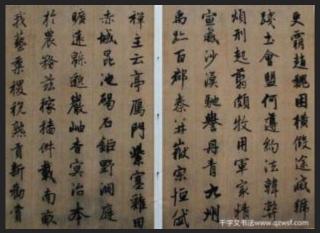 更霸趙魏困橫假途滅虢
踐土會盟何遵約法韓弊
煩刑起翦頗牧用軍最精
宣威沙漠馳譽丹青九州
禹跡百郡秦并嶽宗恒岱
禪主云亭雁門紫塞雞田
赤城昆池碣石鉅野洞庭
曠遠綿邈巖岫杳冥治本
於農務茲稼穡俶載南畝
我藝黍稷稅熟貢新勸賞
千字文书法www.qzwsf.com